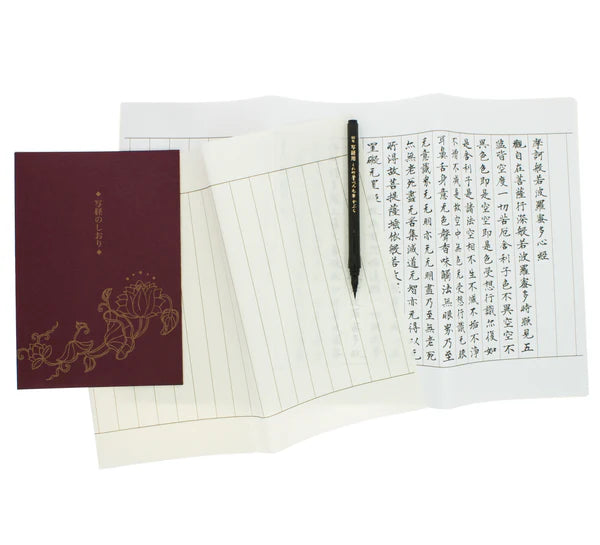 写経のしおり
写経用
摩訶般若波羅蜜多心經
觀自在菩薩行深般若波羅蜜多時照見五
蘊皆空度一切苦厄舎利子色不異空空不
異色色即是空空即是色受想行識亦復如
是舎利子是諸法空相不生不滅不垢不浄
不増不減是故空中無色无受想行識无眼
耳鼻舌身意无色聲香味觸法無眼界乃至
无意識界无无明亦无无明盡乃至無老死
亦无老死盡无苦集滅道无智亦无得以无
所得故菩提薩埵依般若波
罣礙无罣